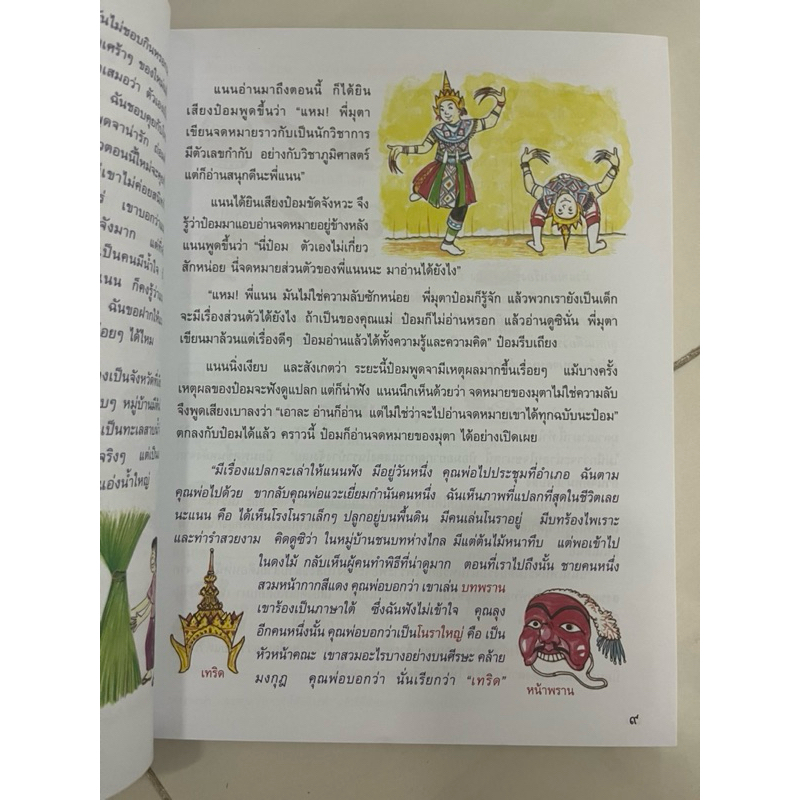 ันไม่ชอบกินหวาน
ฉันชอบคุยกับ
พูดจาน่ารัก
เขาไม่ค่อย
เขาบอกว่า
จังมาก แต่
เป็นคนมีน้ำใจ
แนน ก็คงรู้ว่า
ฉันขอฝากให้
่อยๆ ได้ไหม
องเป็นจังหวัดที่
บๆ หมู่บ้าน
เป็นทะเลสาบ
จริงๆ แต่เป็น
แอ่งน้ำใหญ่
แนนอ่านมาถึงตอนนี้ ก็ได้ยิน
เสียงป๋อมพูดขึ้นว่า “แหม! พี่มุตา
เขียนจดหมายราวกับเป็นนักวิชาการ
มีตัวเลขกำกับ อย่างกับวิชาภูมิศาสตร์
แต่ก็อ่านสนุกดีนะพี่แนน”
แนนได้ยินเสียงป๋อมขัดจังหวะ จึง
รู้ว่าป๋อมมาแอบอ่านจดหมายอยู่ข้างหลัง
แนนพูดขึ้นว่า “นี่ป๋อม ตัวเองไม่เกี่ยว
สักหน่อย นี่จดหมายส่วนตัวของพี่แนนนะ มาอ่านได้ยังไง”
“แหม! พี่แนน มันไม่ใช่ความลับซักหน่อย พี่มุตาป๋อมก็รู้จัก แล้วพวกเรายังเป็นเด็ก
จะมีเรื่องส่วนตัวได้ยังไง ถ้าเป็นของคุณแม่ ป๋อมก็ไม่อ่านหรอก แล้วอ่านดูซินั่น พี่มุตา
เขียนมาล้วนแต่เรื่องดีๆ ป๋อมอ่านแล้วได้ทั้งความรู้และความคิด” ป๋อมรีบเถียง
แนนนิ่งเงียบ และสังเกตว่า ระยะนี้ป๋อมพูดจามีเหตุผลมากขึ้นเรื่อยๆ แม้บางครั้ง
เหตุผลของป๋อมจะฟังดูแปลก แต่ก็น่าฟัง แนนนึกเห็นด้วยว่า จดหมายของมุตาไม่ใช่ความลับ
จึงพูดเสียงเบาลงว่า “เอาละ อ่านก็อ่าน แต่ไม่ใช่ว่าจะไปอ่านจดหมายเขาได้ทุกฉบับนะป๋อม”
ตกลงกับป๋อมได้แล้ว คราวนี้ ป๋อมก็อ่านจดหมายของมุตา ได้อย่างเปิดเผย
“มีเรื่องแปลกจะเล่าให้แนนฟัง มีอยู่วันหนึ่ง คุณพ่อไปประชุมที่อำเภอ ฉันตาม
คุณพ่อไปด้วย ขากลับคุณพ่อแวะเยี่ยมกำนันคนหนึ่ง ฉันเห็นภาพที่แปลกที่สุดในชีวิตเลย
นะแนน คือ ได้เห็นโรงโนราเล็กๆ ปลูกอยู่บนพื้นดิน มีคนเล่นโนราอยู่ มีบทร้องไพเราะ
และท่ารำสวยงาม คิดดูซิว่า ในหมู่บ้านชนบทห่างไกล มีแต่ต้นไม้หนาทึบ แต่พอเข้าไป
ในดงไม้ กลับเห็นผู้คนทำพิธีที่น่าดูมาก ตอนที่เราไปถึงนั้น ชายคนหนึ่ง
สวมหน้ากากสีแดง คุณพ่อบอกว่า เขาเล่น บทพราน
เขาร้องเป็นภาษาใต้ ซึ่งฉันฟังไม่เข้าใจ คุณลุง
อีกคนหนึ่งนั้น คุณพ่อบอกว่าเป็นโนราใหญ่ คือ เป็น
หัวหน้าคณะ เขาสวมอะไรบางอย่างบนศีรษะ คล้าย
มงกุฎ คุณพ่อบอกว่า นั่นเรียกว่า “เทริด”
เทริด
หน้าพราน
๙